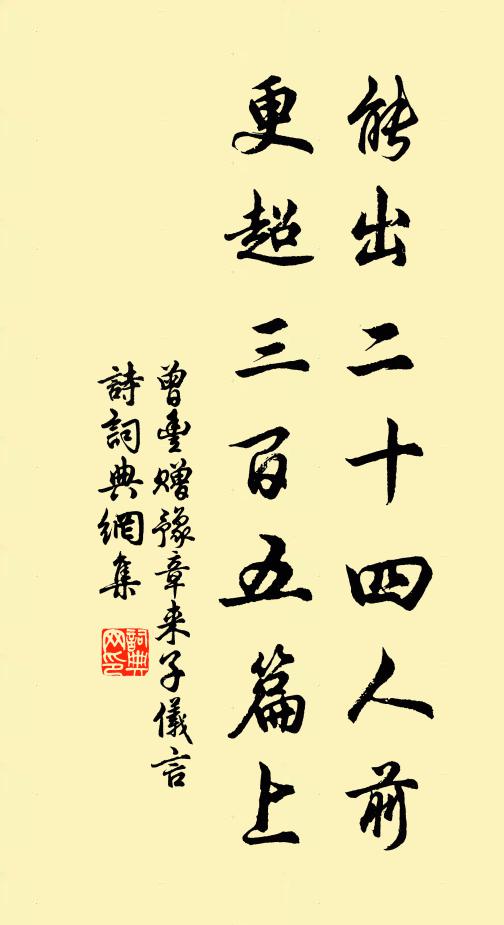 能出二十四人前
更超三百五篇上
曾豐贈豫章来子儀言
詩詞典網集
詞典
网印